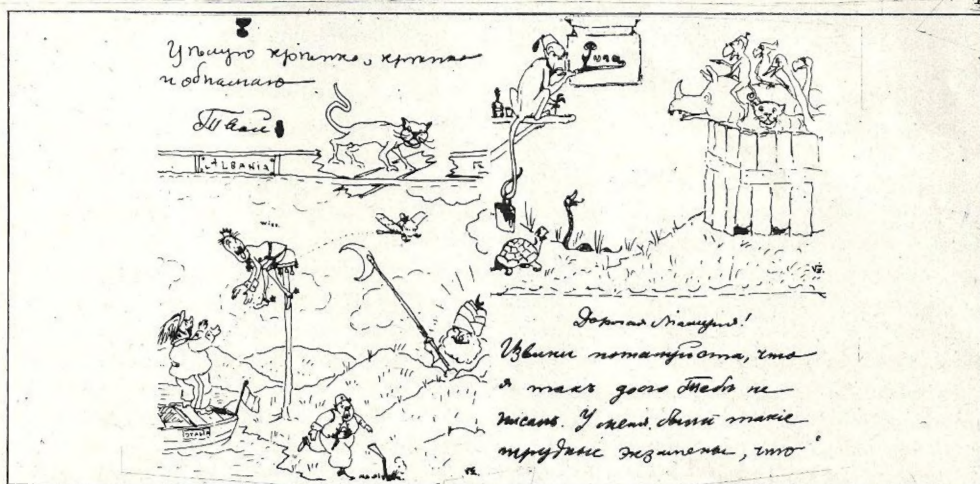 Цѣлую крѣпко, крѣпко
и обнимаю
Твой
ALBANIA
Wied
Дорогая Мамуся!
Извини пожалуйста, что
я такъ долго Тебѣ не
писалъ. У меня были такіе
трудные экзамены, что